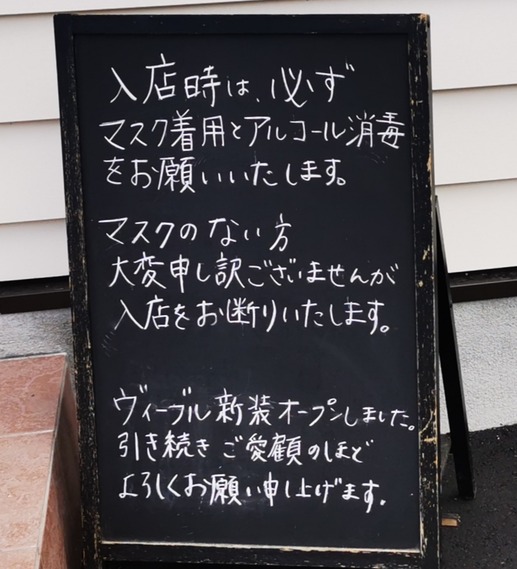 入店時は、必ず
マスク着用とアルコール消毒
をお願いいたします。
マスクのない方
大変申し訳ございませんが
入店をお断りいたします。
ヴィーブル新装オープンしました。
引き続きご愛顧のほど
よろしくお願い申し上げます。